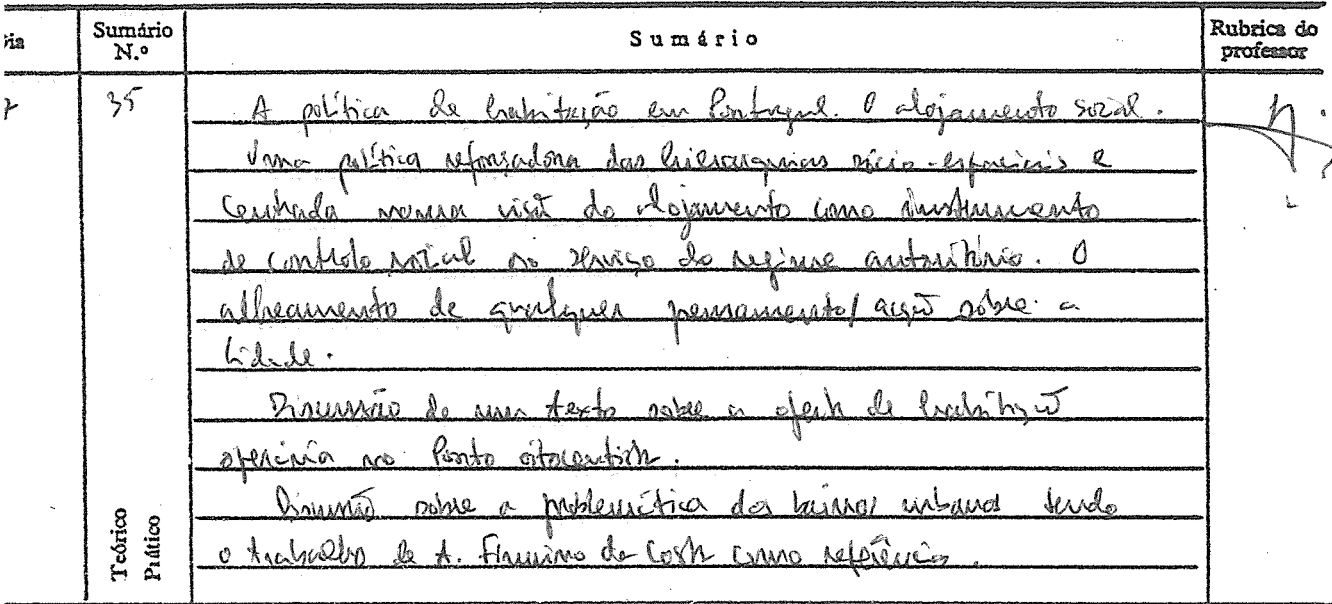 Dia Sumário N.º Sumário Rubrica do professor
7 35 A política de habitação em Portugal. O alojamento social.
Uma política reforçadora das hierarquias sócio-espaciais e
centrada numa visão do alojamento como instrumento
de controlo social ao serviço do regime autoritário. O
alheamento de qualquer pensamento/acção sobre a
cidade.
Discussão de um texto sobre a oferta de habitação
operária no Porto oitocentista.
Discussão sobre a problemática dos bairros urbanos tendo
o trabalho de A. Firmino da Costa como referência.
Teórico
Prático